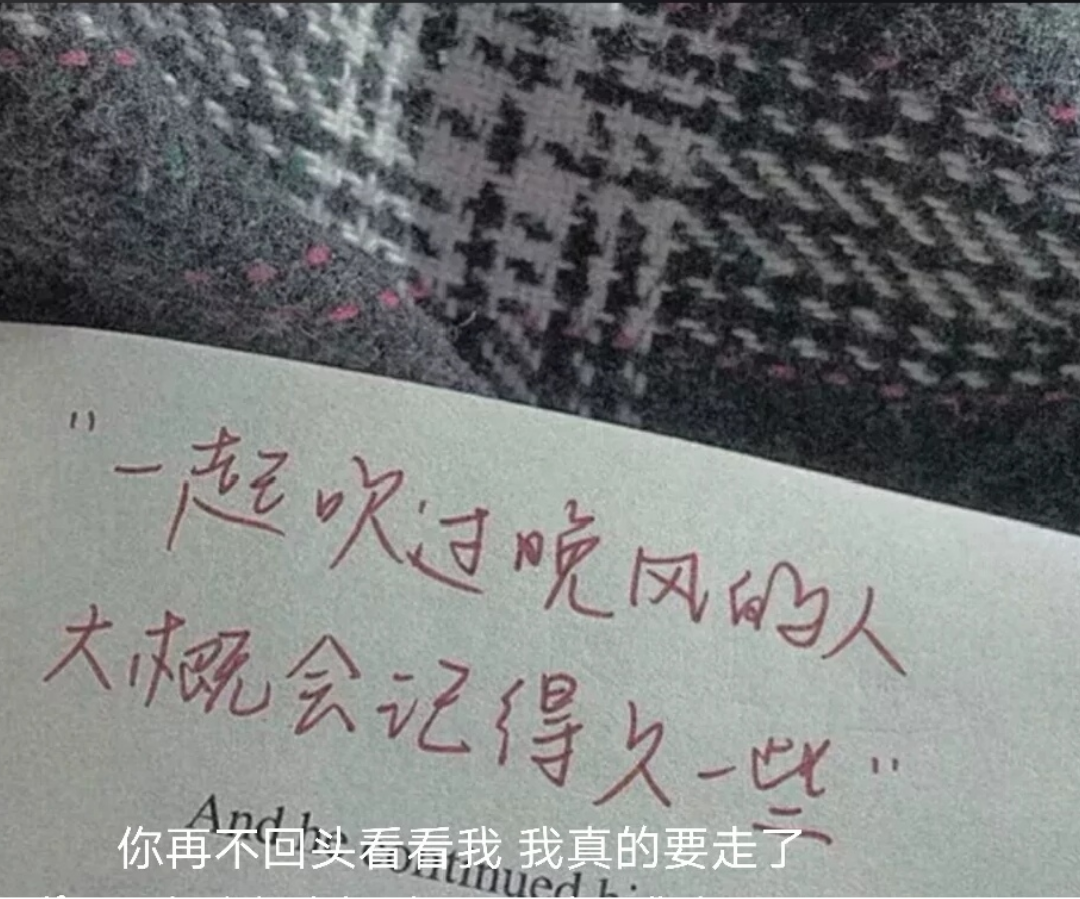 "一起吹过晚风的人
大概会记得久一些"
And he continued
你再不回头看看我 我真的要走了